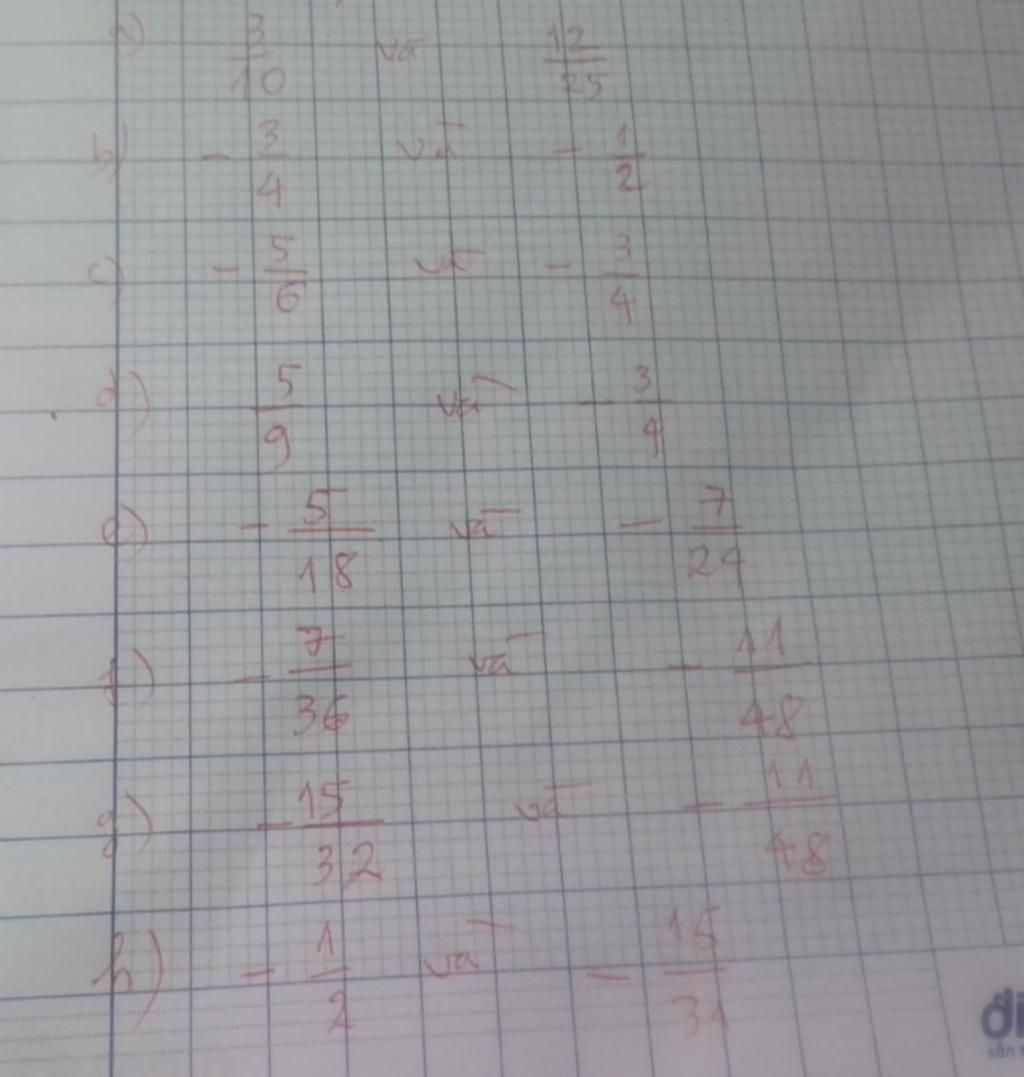 a) 3/10 và 12/25
b) - 3/4 và - 1/2
c) - 5/6 và - 3/4
d) 5/9 và - 3/4
e) - 5/18 và - 7/24
f) - 7/36 và - 11/48
g) - 15/32 và - 11/48
h) - 1/2 và - 15/31